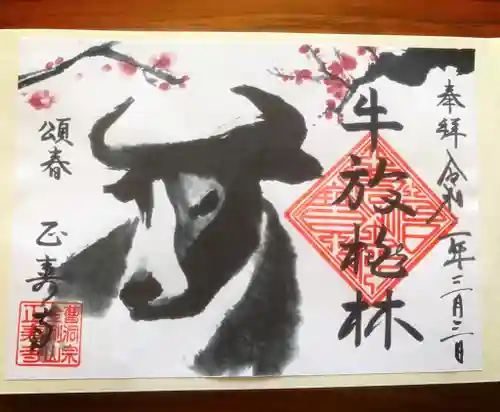 奉拝 令和年月日
牛放桃林
頌春
正寿寺
曹洞宗
金剛山
正寿寺